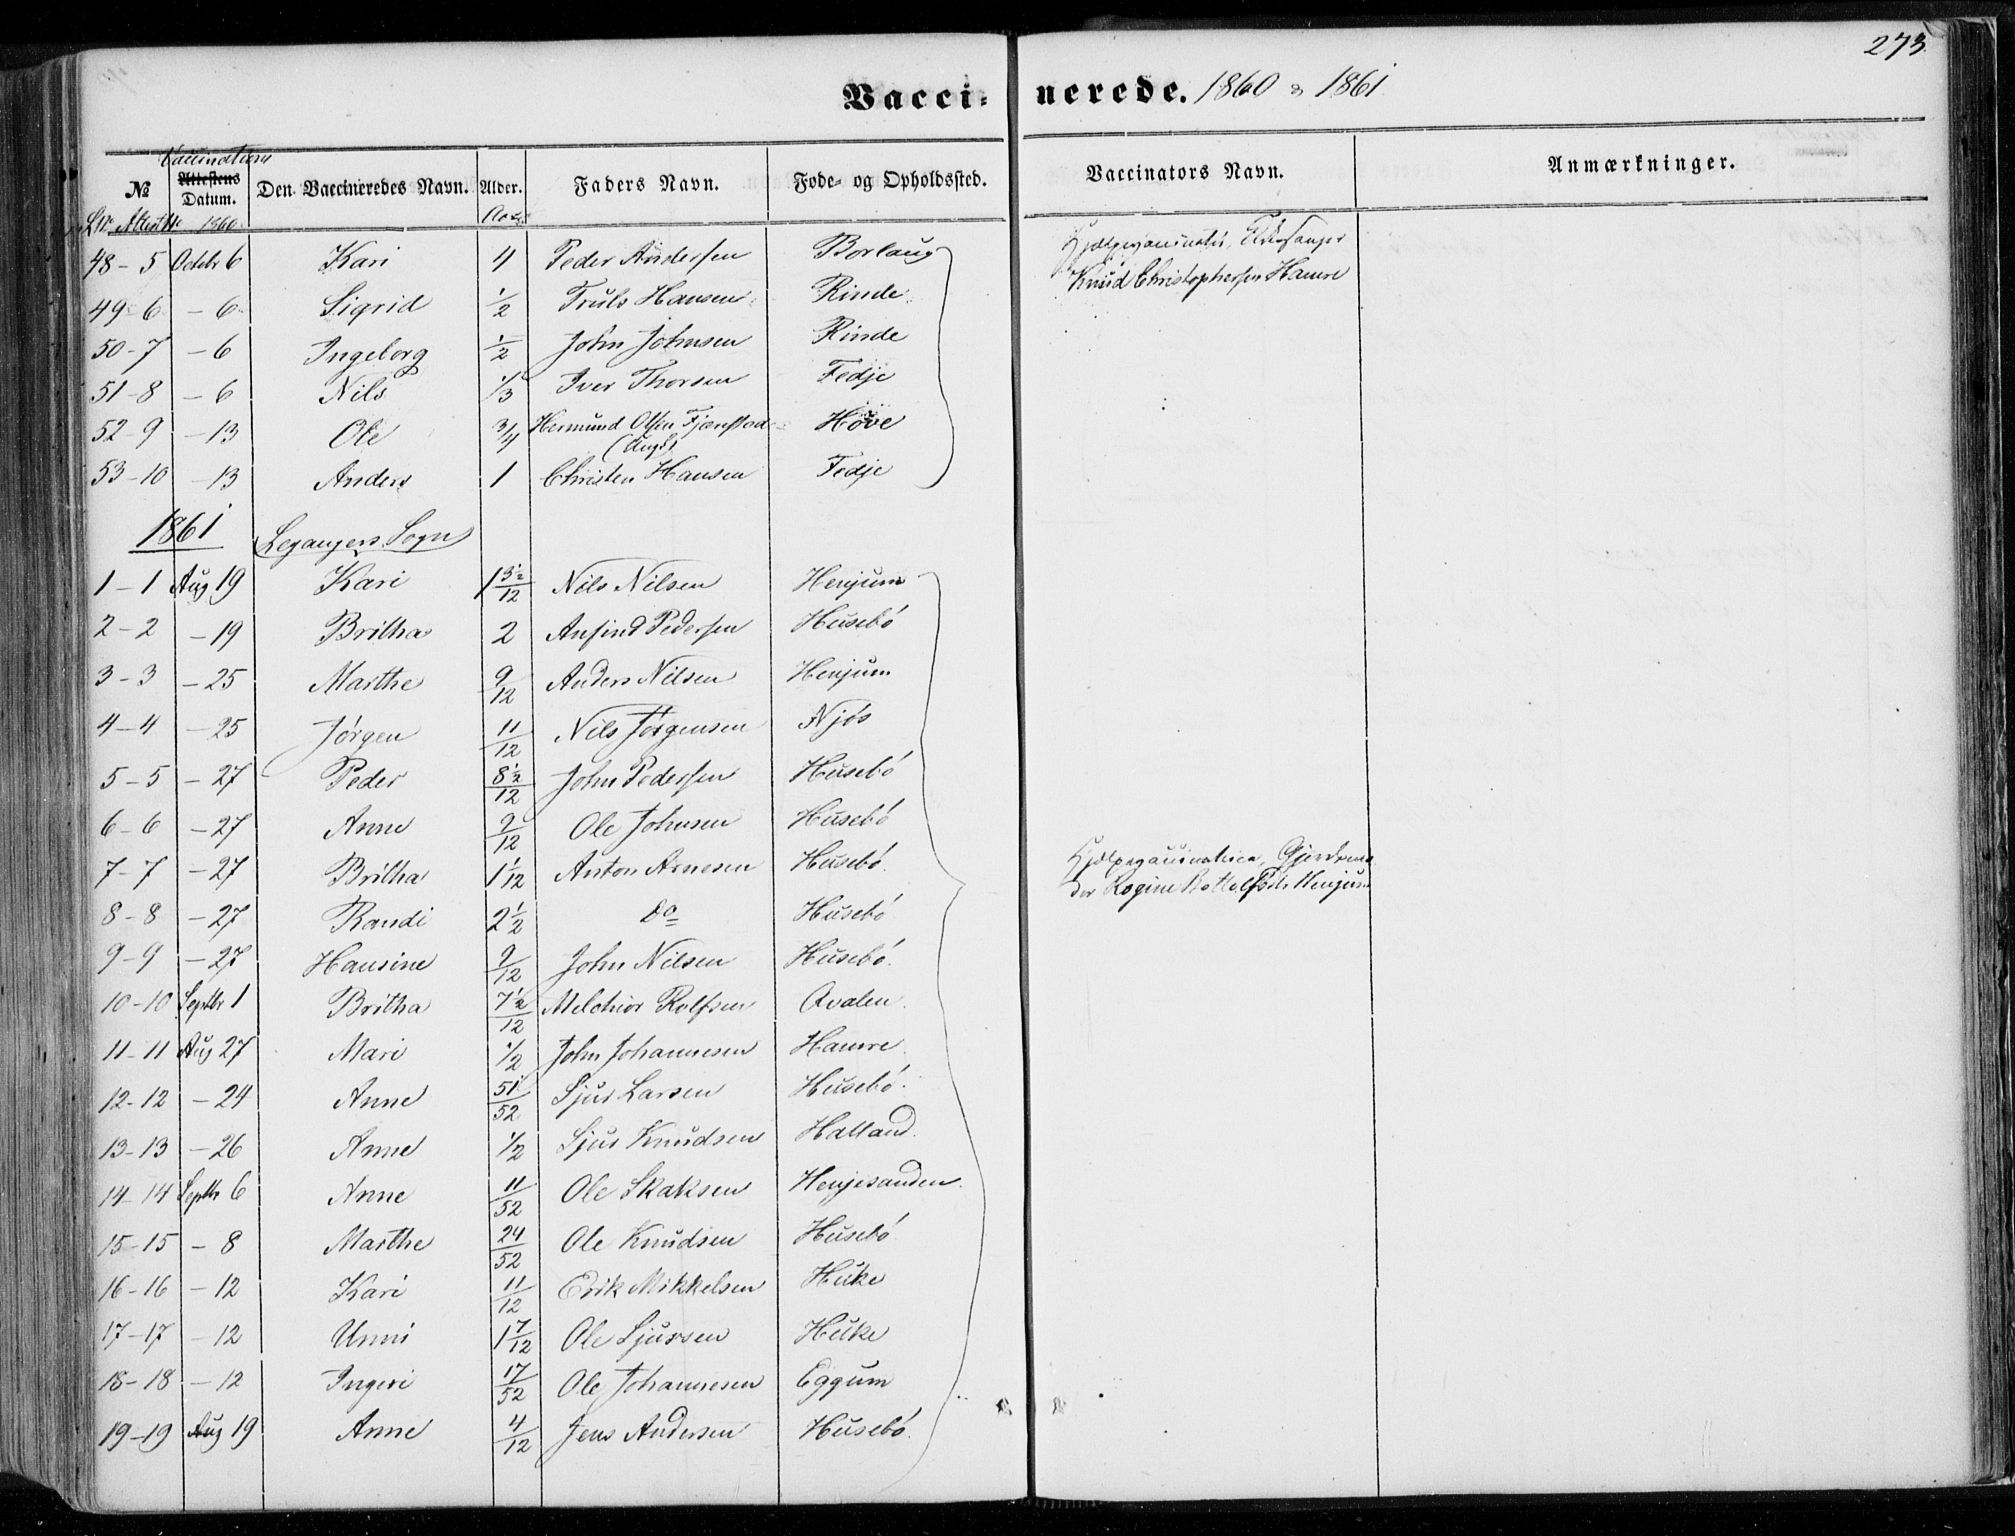 273.
Vaccinerede. 1860 & 1861
Vaccinations
№ Attestens Datum. Den Vaccineredes Navn. Alder. Faders Navn. Føde- og Opholdssted. Vaccinators Navn. Anmærkninger.
Attest 1860 Aar
48-5 Octobr 6 Kari 4 Peder Andersen Borlaug Hjælpevaccinatør, Kirkesanger
49-6 - 6 Sigrid 1/2 Truls Hansen Rinde Knud Christophersen Hamre
50-7 - 6 Ingeborg 1/2 John Johnsen Rinde
51-8 - 6 Nils 1/3 Iver Thorsen Fedje
52-9 - 13 Ole 3/4 Hermund Olsen Fjærestad Hove
(Ungk)
53-10 - 13 Anders 1 Christen Hansen Fedje
1861 Legangers Sogn
1-1 Aug 19 Kari 1 3½/12 Nils Nilsen Henjum
2-2 - 19 Britha 2 Anfind Pedersen Husebø
3-3 - 25 Marthe 9/12 Anders Nilsen Henjum
4-4 - 25 Jørgen 11/12 Nils Jørgensen Njøs
5-5 - 27 Peder 8½/12 John Pedersen Husebø
6-6 - 27 Anne 9/12 Ole Johnsen Husebø
7-7 - 27 Britha 1 1/12 Anton Arnesen Husebø. Hjælpevaccinatrice, Gjordemo
8-8 - 27 Randi 2 1/2 do Husebø der Regine Bottolfsdr Henjum
9-9 - 27 Hansine 9/12 John Nilsen Husebø.
10-10 Septbr 1 Britha 7½/12 Melchior Rolfsen Qvalen.
11-11 Aug 27 Mari 1/2 John Johannesen Hamre.
12-12 - 24 Anne 51/52 Sjur Larsen Husebø.
13-13 - 26 Anne 1/2 Sjur Knudsen Halland.
14-14 Septbr 6 Anne 11/52 Ole Skaksen Henjesanden.
15-15 - 8 Marthe 24/52 Ole Knudsen Husebø
16-16 - 12 Kari 11/12 Erik Mikkelsen Huke
17-17 - 12 Unni 1 7/12 Ole Sjursen Huke
18-18 - 12 Ingeri 17/52 Ole Johannesen Eggum
19-19 Aug 19 Anne 4/12 Jens Andersen Husebø.